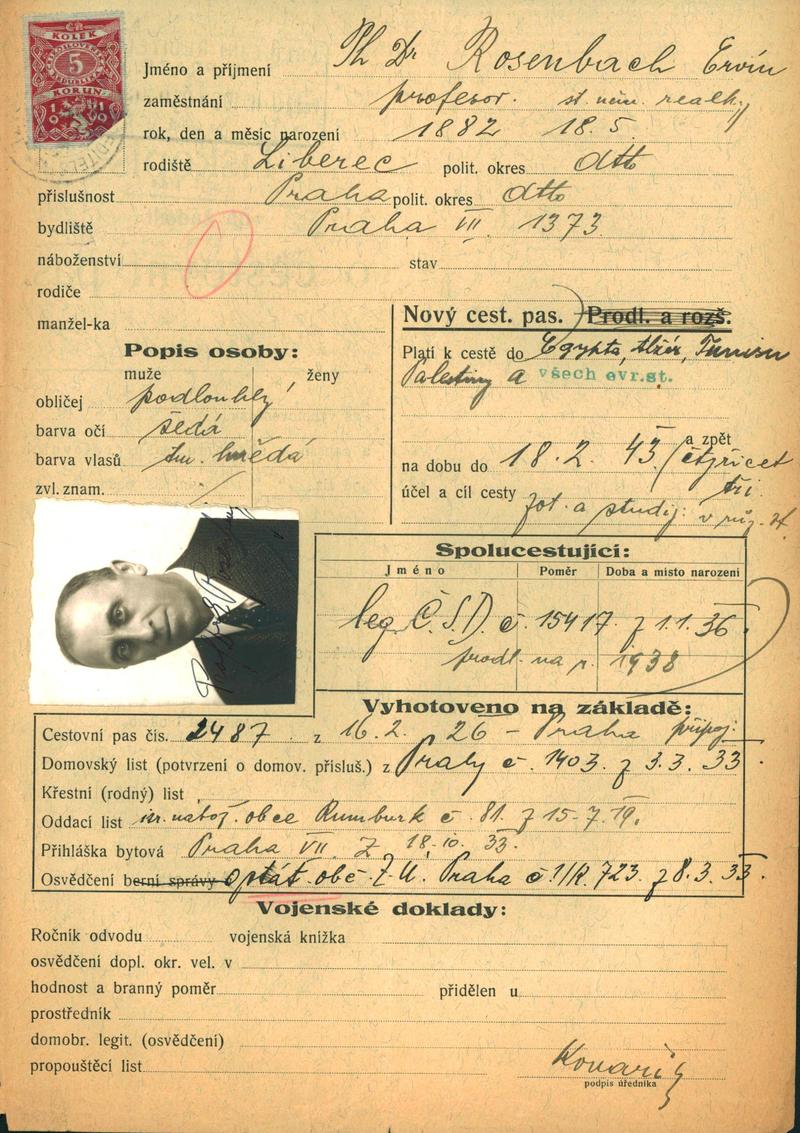 KOLEK
5
KORUN
Jméno a příjmení Ph Dr Rosenbach Ervín
zaměstnání profesor. st. něm. realk.
rok, den a měsíc narození 1882 18.5.
rodiště Liberec polit. okres dtto
příslušnost Praha polit. okres dtto
bydliště Praha VII. 1373
náboženství stav
rodiče
manžel-ka
Popis osoby:
muže ženy
obličej podlouhlý
barva očí šedá
barva vlasů tm. hnědá
zvl. znam.
Nový cest. pas. Prodl. a rozš.
Platí k cestě do Egypta, Alžír, Tunisu
Palestiny a všech evr. st.
a zpět
na dobu do 18.2. 43 (čtyřicet
tři
účel a cíl cesty zot. a studij. v růz. st.
Spolucestující:
Jméno Poměr Doba a místo narození
leg. Č.S.D. č. 15417 z 1.1.36.
prodl. na r. 1938
Vyhotoveno na základě:
Cestovní pas čís. 2487 z 16.2. 26 - Praha připoj.
Domovský list (potvrzení o domov. přísluš.) z Prahy č. 1403 z 3.3. 33.
Křestní (rodný) list
Oddací list isr. nábož. obce Rumburk č. 81. z 15.7.19.
Přihláška bytová Praha VII z 18.10. 33.
Osvědčení berní správy Praha 723. z 8.3. 33.
Vojenské doklady:
Ročník odvodu vojenská knížka
osvědčení dopl. okr. vel. v
hodnost a branný poměr přidělen u
prostředník
domobr. legit. (osvědčení)
propouštěcí list
podpis úředníka